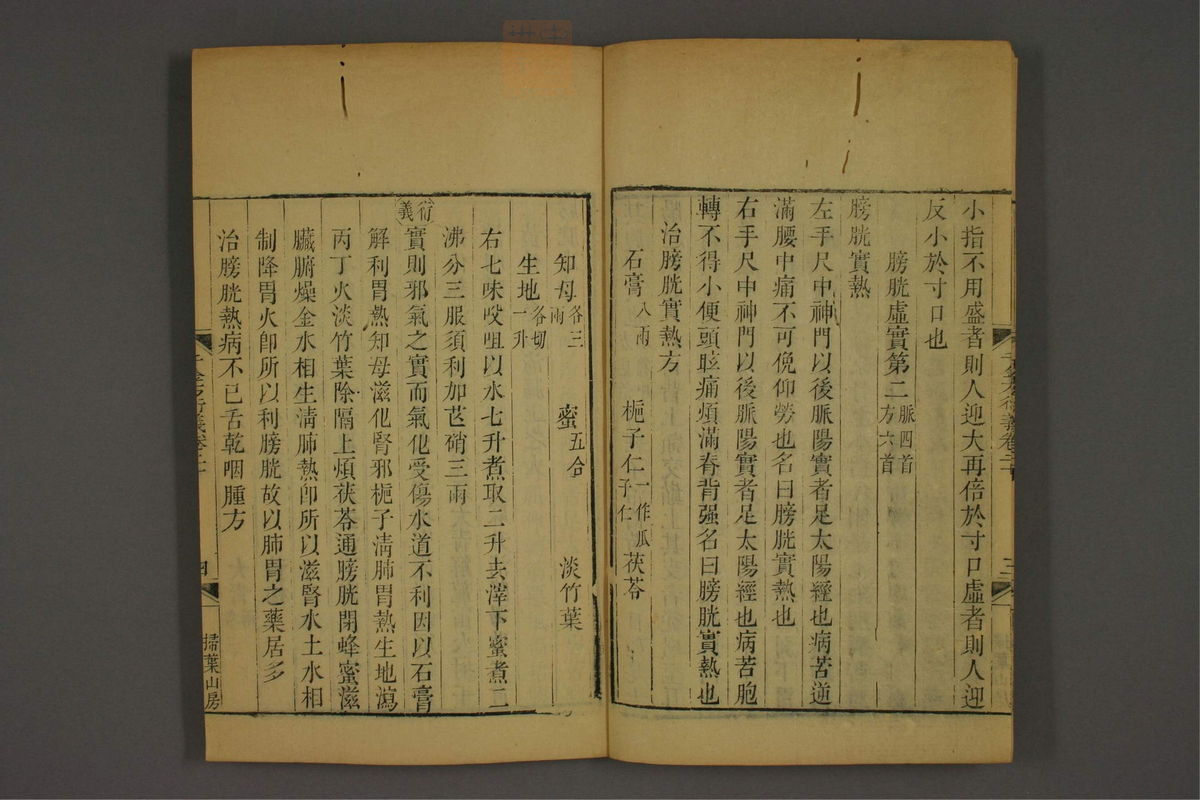 小指不用盛者則人迎大再倍於寸口虛者則人迎
反小於寸口也
膀胱虛實第二 脈四首 方六首
膀胱實熱
左手尺中神門以後脈陽實者足太陽經也病苦逆
滿腰中痛不可俛仰勞也名曰膀胱實熱也
右手尺中神門以後脈陽實者足太陽經也病苦胞
轉不得小便頭眩痛煩滿脊背强名曰膀胱實熱也
治膀胱實熱方
石膏 八兩 梔子仁 一作瓜子仁 茯苓
知母 各三兩 蜜 五合 淡竹葉
生地 各切一升
右七味㕮咀以水七升煮取二升去滓下蜜煮二
沸分三服須利加芒硝三兩
衍義 實則邪氣之實而氣化受傷水道不利因以石膏
解利胃熱知母滋化腎邪梔子清肺胃熱生地瀉
丙丁火淡竹葉除隔上煩茯苓通膀胱閉蜂蜜滋
臟腑燥金水相生清肺熱卽所以滋腎水土水相
制降胃火卽所以利膀胱故以肺胃之藥居多
治膀胱熱病不已舌乾咽腫方
四
掃葉山房